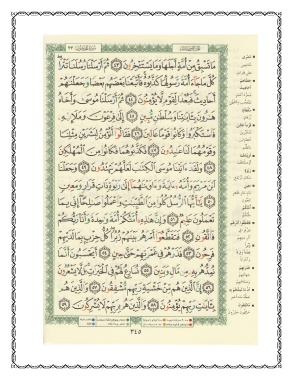 مَا تَسْبِقُ مِنْ أُمَّةٍ أَجَلَهَا وَمَا يَسْتَـْٔخِرُونَ ٤٣ ثُمَّ أَرْسَلْنَا رُسُلَنَا تَتْرَا
كُلَّ مَا جَآءَ أُمَّةً رَّسُولُهَا كَذَّبُوهُ فَأَتْبَعْنَا بَعْضَهُم بَعْضًا وَجَعَلْنَٰهُمْ
أَحَادِيثَ فَبُعْدًا لِّقَوْمٍ لَّا يُؤْمِنُونَ ٤٤ ثُمَّ أَرْسَلْنَا مُوسَىٰ وَأَخَاهُ
هَٰرُونَ بِـَٔايَٰتِنَا وَسُلْطَٰنٍ مُّبِينٍ ٤٥ إِلَىٰ فِرْعَوْنَ وَمَلَإِيْهِۦ
فَٱسْتَكْبَرُوا۟ وَكَانُوا۟ قَوْمًا عَالِينَ ٤٦ فَقَالُوٓا۟ أَنُؤْمِنُ لِبَشَرَيْنِ مِثْلِنَا
وَقَوْمُهُمَا لَنَا عَٰبِدُونَ ٤٧ فَكَذَّبُوهُمَا فَكَانُوا۟ مِنَ ٱلْمُهْلَكِينَ
٤٨ وَلَقَدْ ءَاتَيْنَا مُوسَى ٱلْكِتَٰبَ لَعَلَّهُمْ يَهْتَدُونَ ٤٩ وَجَعَلْنَا
ٱبْنَ مَرْيَمَ وَأُمَّهُۥٓ ءَايَةً وَءَاوَيْنَٰهُمَآ إِلَىٰ رَبْوَةٍ ذَاتِ قَرَارٍ وَمَعِينٍ
٥٠ يَٰٓأَيُّهَا ٱلرُّسُلُ كُلُوا۟ مِنَ ٱلطَّيِّبَٰتِ وَٱعْمَلُوا۟ صَٰلِحًا إِنِّى بِمَا
تَعْمَلُونَ عَلِيمٌ ٥١ وَإِنَّ هَٰذِهِۦٓ أُمَّتُكُمْ أُمَّةً وَٰحِدَةً وَأَنَا۠ رَبُّكُمْ
فَٱتَّقُونِ ٥٢ فَتَقَطَّعُوٓا۟ أَمْرَهُم بَيْنَهُمْ زُبُرًا كُلُّ حِزْبٍۭ بِمَا لَدَيْهِمْ
فَرِحُونَ ٥٣ فَذَرْهُمْ فِى غَمْرَتِهِمْ حَتَّىٰ حِينٍ ٥٤ أَيَحْسَبُونَ أَنَّمَا
نُمِدُّهُم بِهِۦ مِن مَّالٍ وَبَنِينَ ٥٥ نُسَارِعُ لَهُمْ فِى ٱلْخَيْرَٰتِ بَل لَّا يَشْعُرُونَ
٥٦ إِنَّ ٱلَّذِينَ هُم مِّنْ خَشْيَةِ رَبِّهِم مُّشْفِقُونَ ٥٧ وَٱلَّذِينَ هُم
بِـَٔايَٰتِ رَبِّهِمْ يُؤْمِنُونَ ٥٨ وَٱلَّذِينَ هُم بِرَبِّهِمْ لَا يُشْرِكُونَ ٥٩
٣٤٥